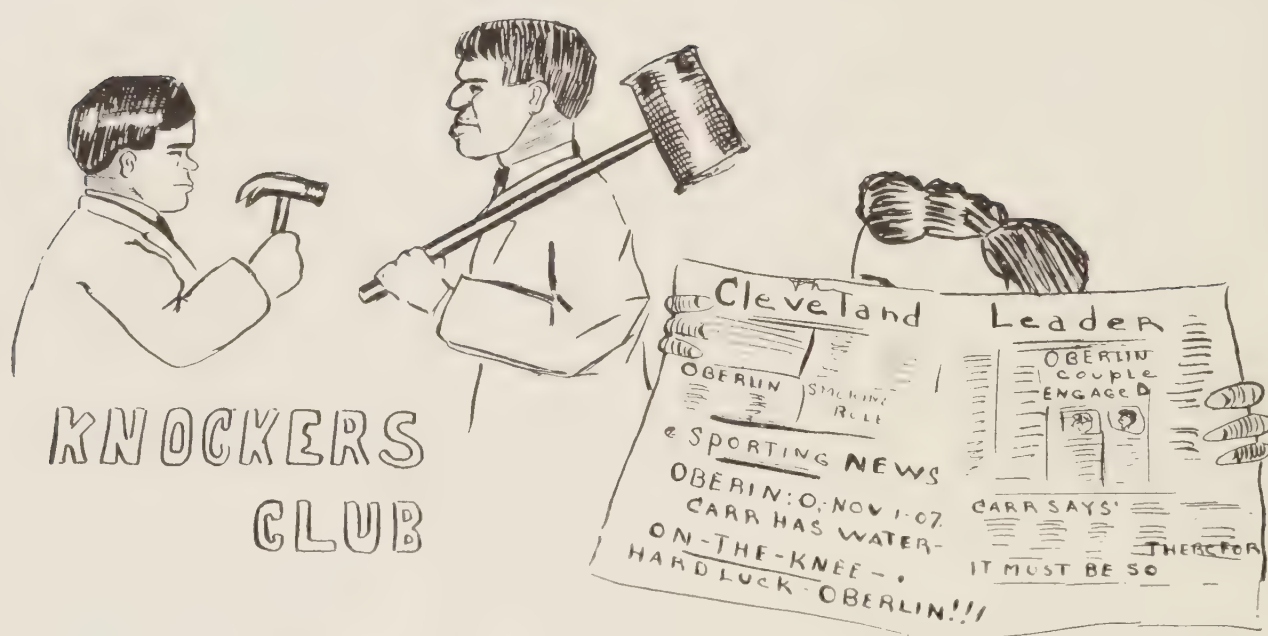 KNOCKERS
CLUB
The
Cleveland Leader
OBERLIN
SMOKING
RULE
SPORTING NEWS
OBERIN: O; NOV 1-07.
CARR HAS WATER-
ON-THE-KNEE-.
HARD LUCK-OBERLIN!!!
OBERLIN
COUPLE
ENGAGED
CARR SAYS'
THEREFOR
IT MUST BE SO